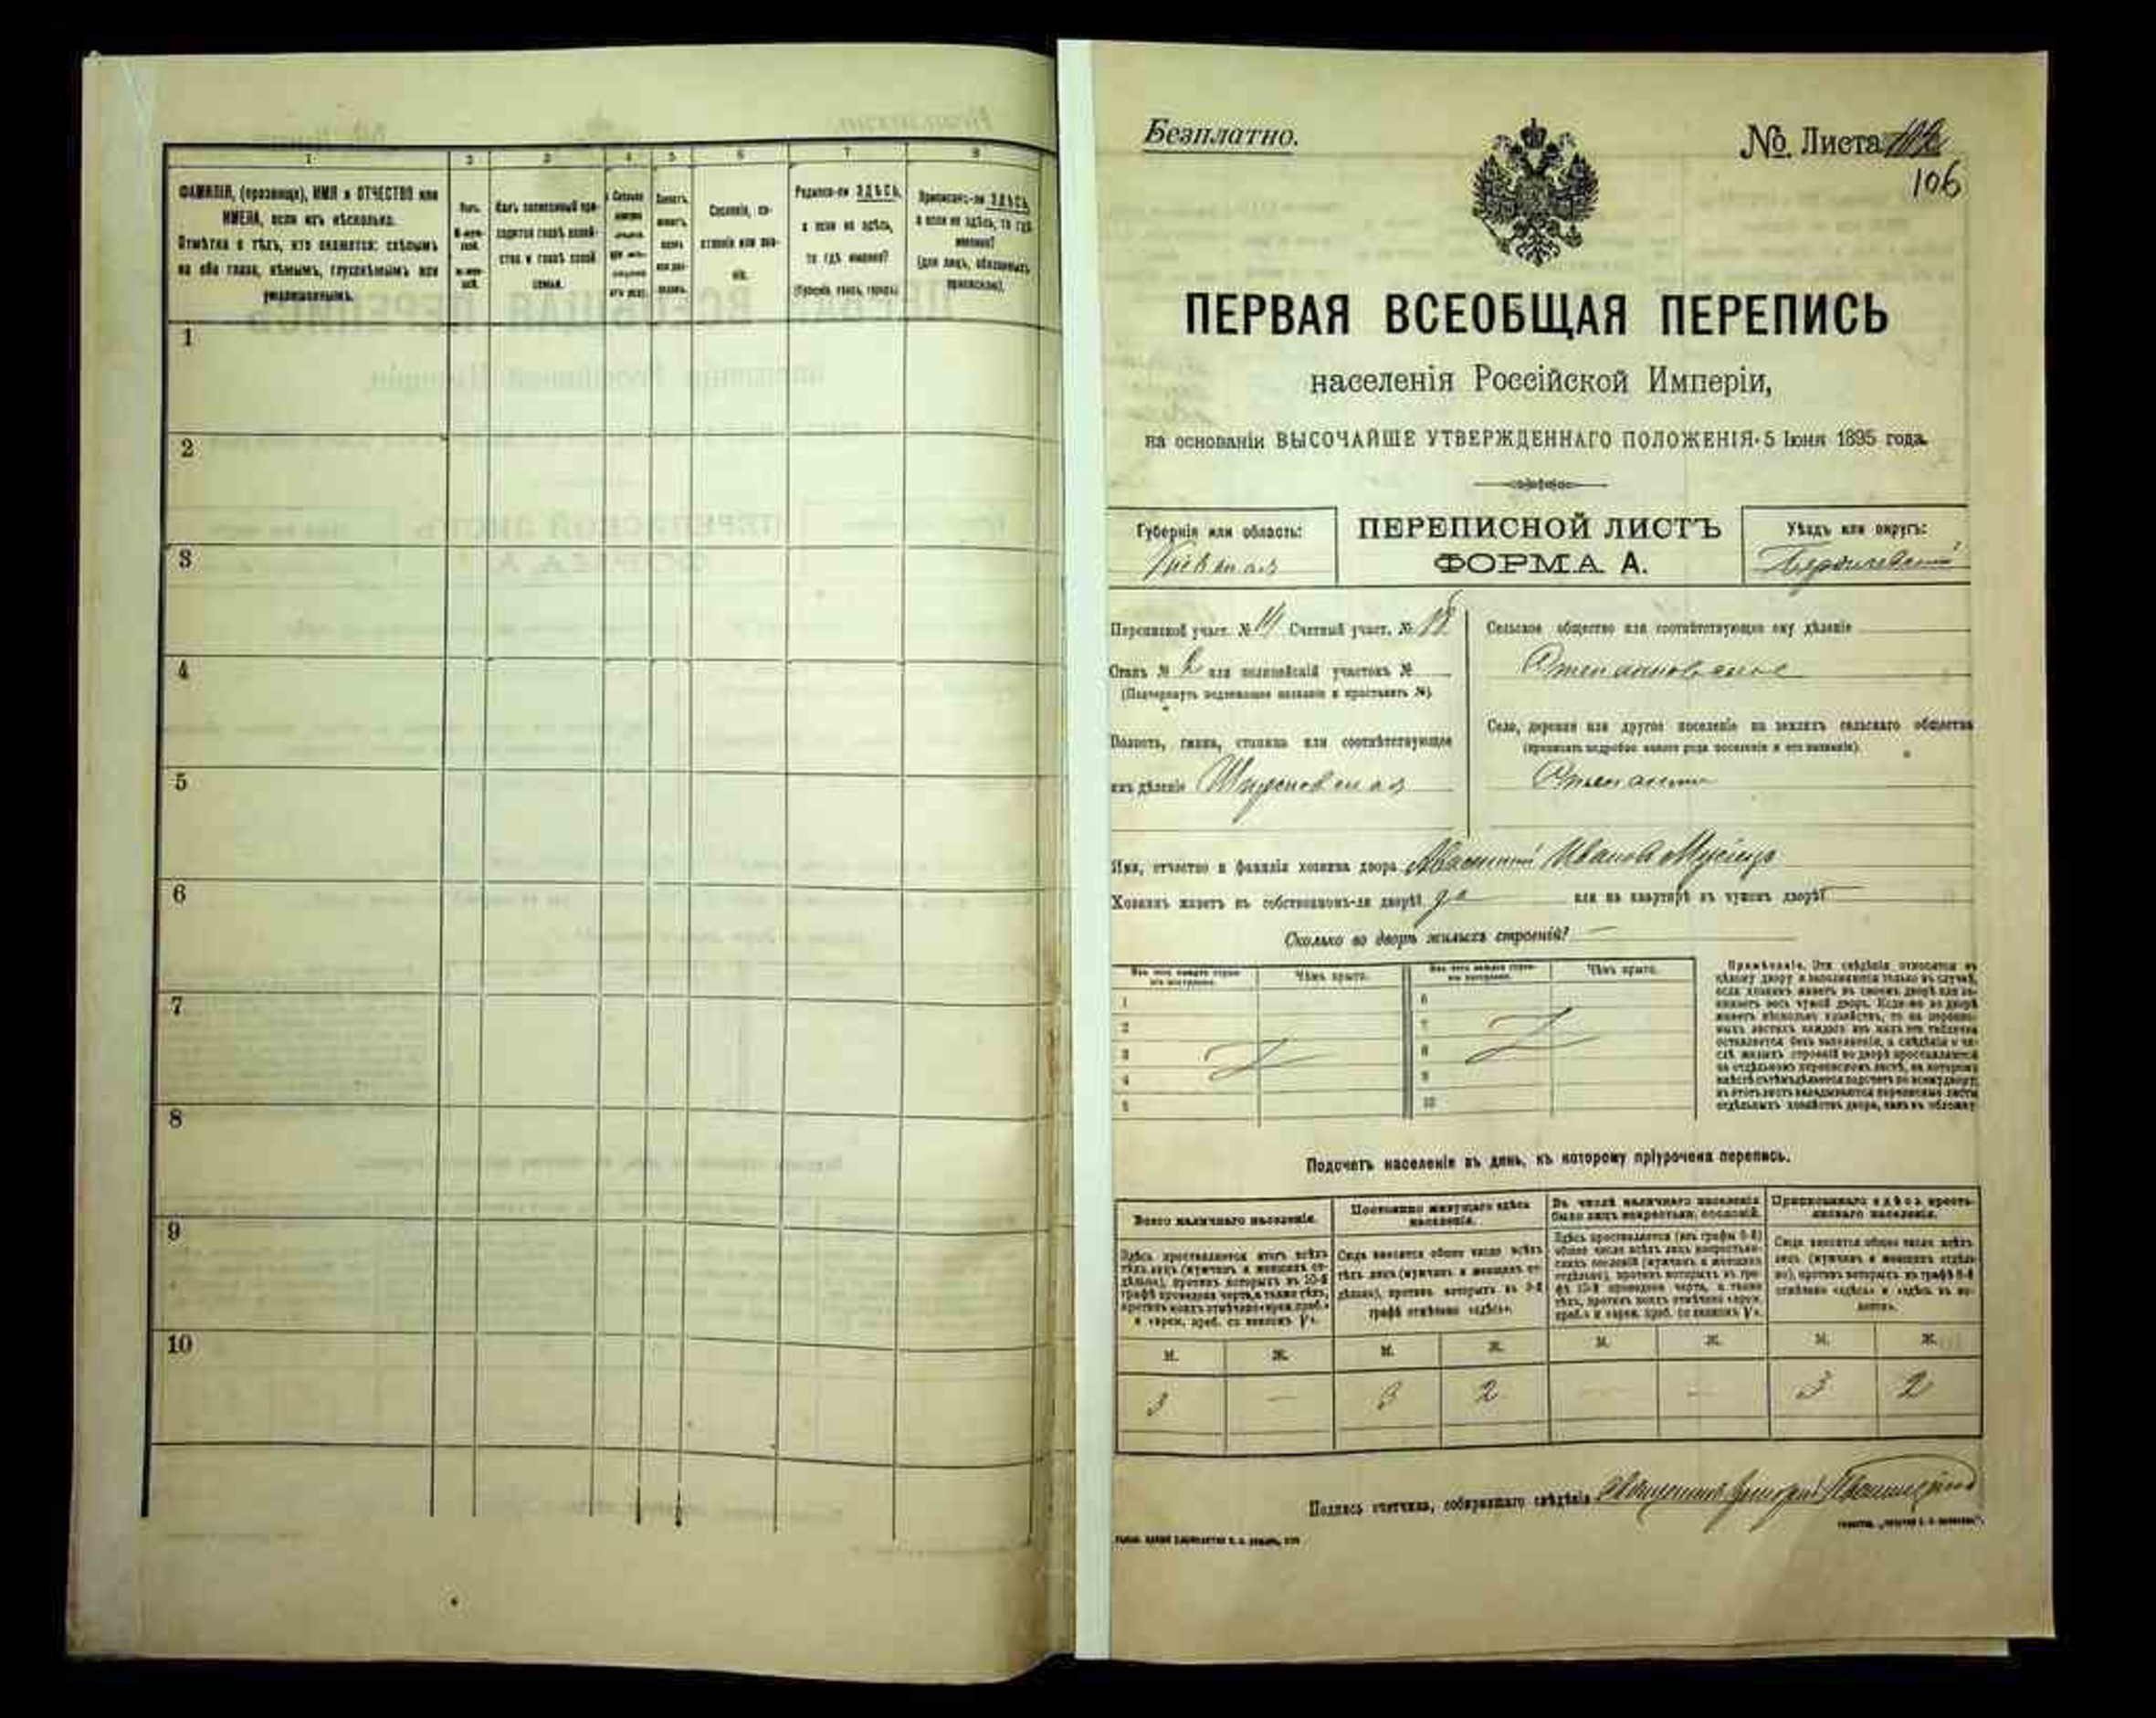 1 2 3 4 5 6 7 8
ФАМИЛІЯ, (прозвище), ИМЯ и ОТЧЕСТВО или
ИМЕНА, если ихъ нѣсколько.
Отмѣтка о тѣхъ, кто окажется: слѣпымъ
на оба глаза, нѣмымъ, глухонѣмымъ или
умалишеннымъ.
Какъ записанный при-
ходится главѣ хозяй-
ства и главѣ своей
семьи.
Сословіе, со-
стояніе или зва-
ніе.
Родился-ли ЗДѢСЬ,
а если не здѣсь,
то гдѣ именно?
(Губернія, уѣздъ, городъ)
Приписанъ-ли ЗДѢСЬ,
а если не здѣсь, то гдѣ
именно?
(для лицъ, обязанныхъ
припискою).
1
2
3
4
5
6
7
8
9
10
Безплатно.
№ Листа
106
ПЕРВАЯ ВСЕОБЩАЯ ПЕРЕПИСЬ
населенія Россійской Имперіи,
на основаніи ВЫСОЧАЙШЕ УТВЕРЖДЕННАГО ПОЛОЖЕНІЯ 5 Іюня 1895 года.
Губернія или область:
Кіевская
ПЕРЕПИСНОЙ ЛИСТЪ
ФОРМА А.
Уѣздъ или округъ:
Бердичевскій
Переписной участ. № Счетный участ. №
Станъ № 2 или полицейскій участокъ №
(Подчеркнуть подлежащее названіе и проставить №)
Волость, гмина, станица или соотвѣтствующее
имъ дѣленіе
Сельское общество или соотвѣтствующее ему дѣленіе
Село, деревня или другое поселеніе на земляхъ сельскаго общества
(прописать подробно какого рода поселеніе и его названіе).
Имя, отчество и фамилія хозяина двора Иванов
Хозяинъ живетъ въ собственномъ-ли дворѣ? да или на квартирѣ въ чужомъ дворѣ?
Сколько во дворѣ жилыхъ строеній?
Изъ чего каждое строе-
ніе построено.
Чѣмъ крыто.
Изъ чего каждое строе-
ніе построено.
Чѣмъ крыто.
1
2
3
4
5
6
7
8
9
10
Примѣчаніе. Эти свѣдѣнія относятся къ
цѣлому двору и заполняются только въ случаѣ,
если хозяинъ живетъ въ своемъ дворѣ или за-
нимаетъ весь чужой дворъ. Если-же во дворѣ
живетъ нѣсколько хозяйствъ, то на перепис-
ныхъ листахъ каждаго изъ нихъ эта табличка
оставляется безъ заполненія, а свѣдѣнія о чи-
слѣ жилыхъ строеній во дворѣ проставляются
на отдѣльномъ переписномъ листѣ, на которомъ
вмѣстѣ съ тѣмъ дѣлается подсчетъ по всему двору;
въ этотъ листъ вкладываются переписные листы
отдѣльныхъ хозяйствъ двора, какъ въ обложку.
Подсчетъ населенія въ день, къ которому пріурочена перепись.
Всего наличнаго населенія.
Здѣсь проставляется итогъ всѣхъ
тѣхъ лицъ (мужчинъ и женщинъ от-
дѣльно), противъ которыхъ въ 10-й
графѣ проведена черта, а также тѣхъ,
противъ коихъ отмѣчено «врем. преб.»
и «врем. преб. со знакомъ V».
Постоянно живущаго здѣсь
населенія.
Сюда вносится общее число всѣхъ
тѣхъ лицъ (мужчинъ и женщинъ от-
дѣльно), противъ которыхъ въ 9-й
графѣ отмѣчено «здѣсь».
Въ числѣ наличнаго населенія
было лицъ некрестьян. сословій.
Здѣсь проставляется (изъ графы 6-й)
общее число всѣхъ лицъ некрестьян-
скихъ сословій (мужчинъ и женщинъ
отдѣльно), противъ которыхъ въ гра-
фѣ 10-й проведена черта, а также
тѣхъ, противъ коихъ отмѣчено «врем.
преб.» и «врем. преб. со знакомъ V».
Приписаннаго здѣсь кресть-
янскаго населенія.
Сюда вносится общее число всѣхъ
лицъ (мужчинъ и женщинъ отдѣль-
но), противъ которыхъ въ графѣ 8-й
отмѣчено «здѣсь» и «здѣсь въ во-
лости».
М. Ж. М. Ж. М. Ж. М. Ж.
3 — 3 2 — — 3 2
Подпись счетчика, собиравшаго свѣдѣнія